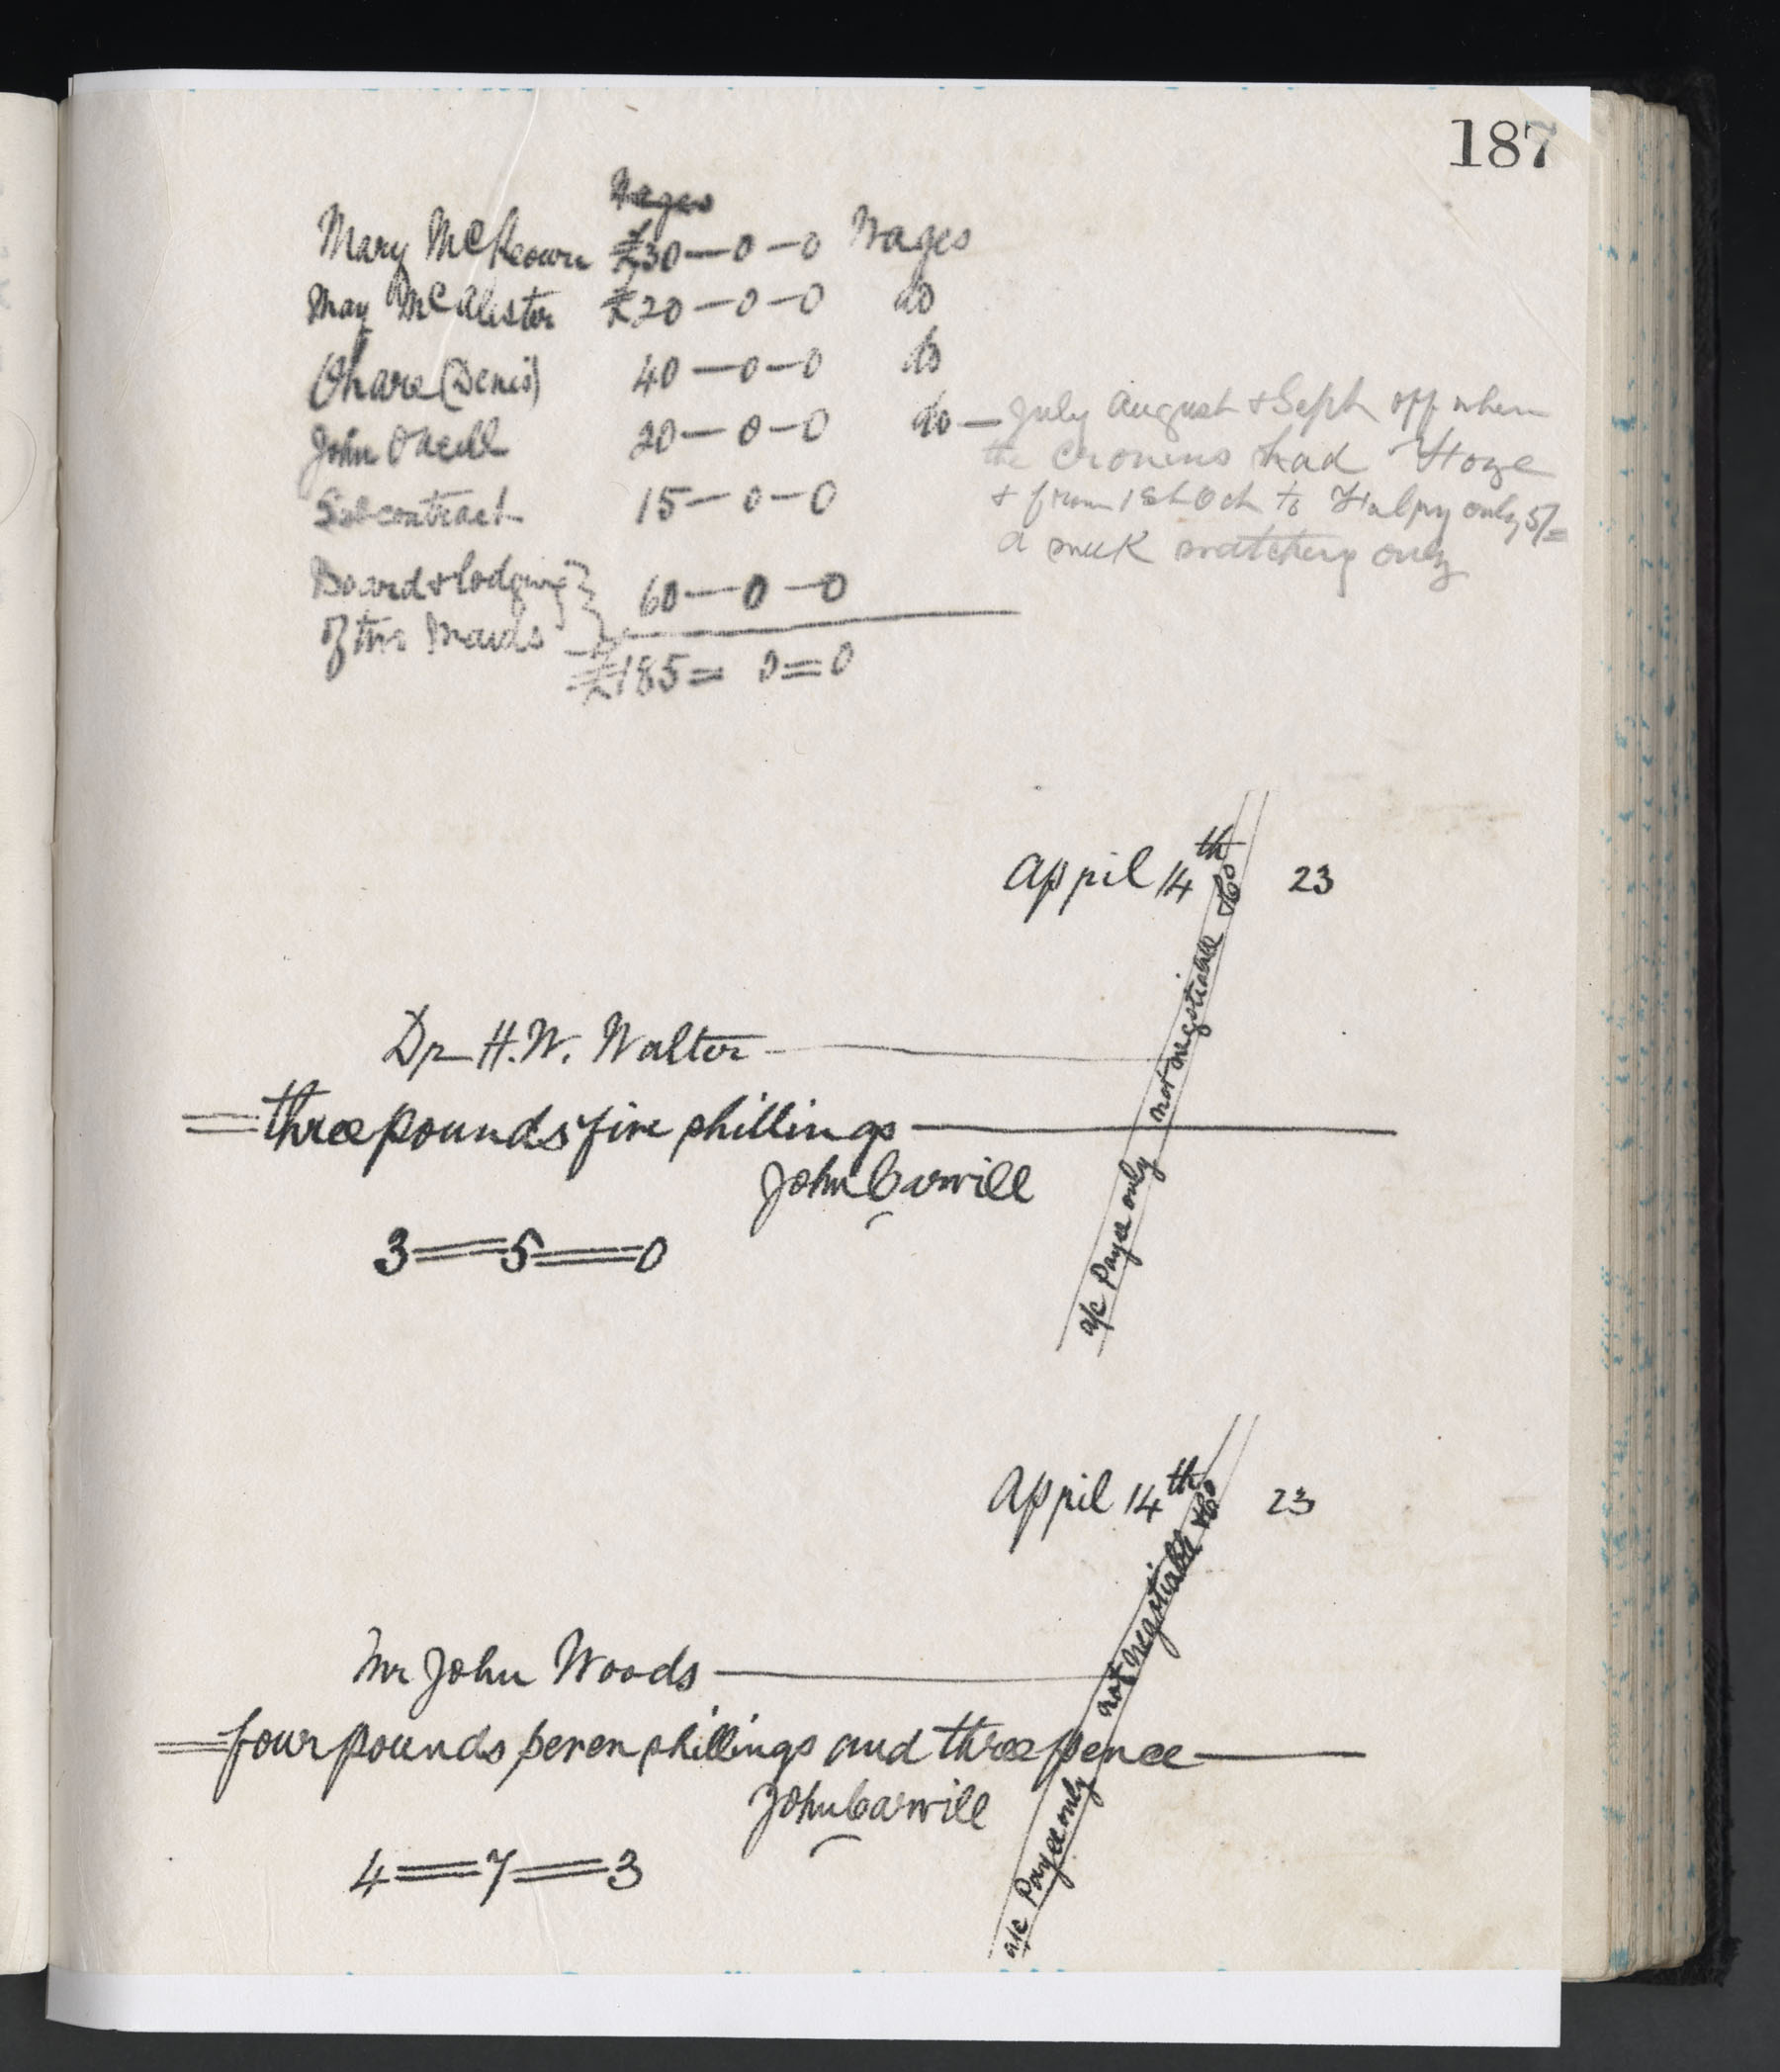 187
Wages
Mary McKeown £30—0—0 Wages
May McAlister £20—0—0 do
Ohare (Denis) 40—0—0 do
John ONeill 20—0—0 do — July August & Sept off when
the Cronins had Hoze
& from 1st Oct to only 5/=
a week watching only
Subcontract 15—0—0
Board & lodging
of two Maids } 60—0—0
£185= 0=0
April 14th 23
Dr H.W. Walter
= three pounds five shillings
John Carvill
3=5=0
a/c Payee only not negotiable &Co
April 14th 23
Mr John Woods
= four pounds seven shillings and three pence
John Carvill
4=7=3
a/c Payee only not negotiable &Co